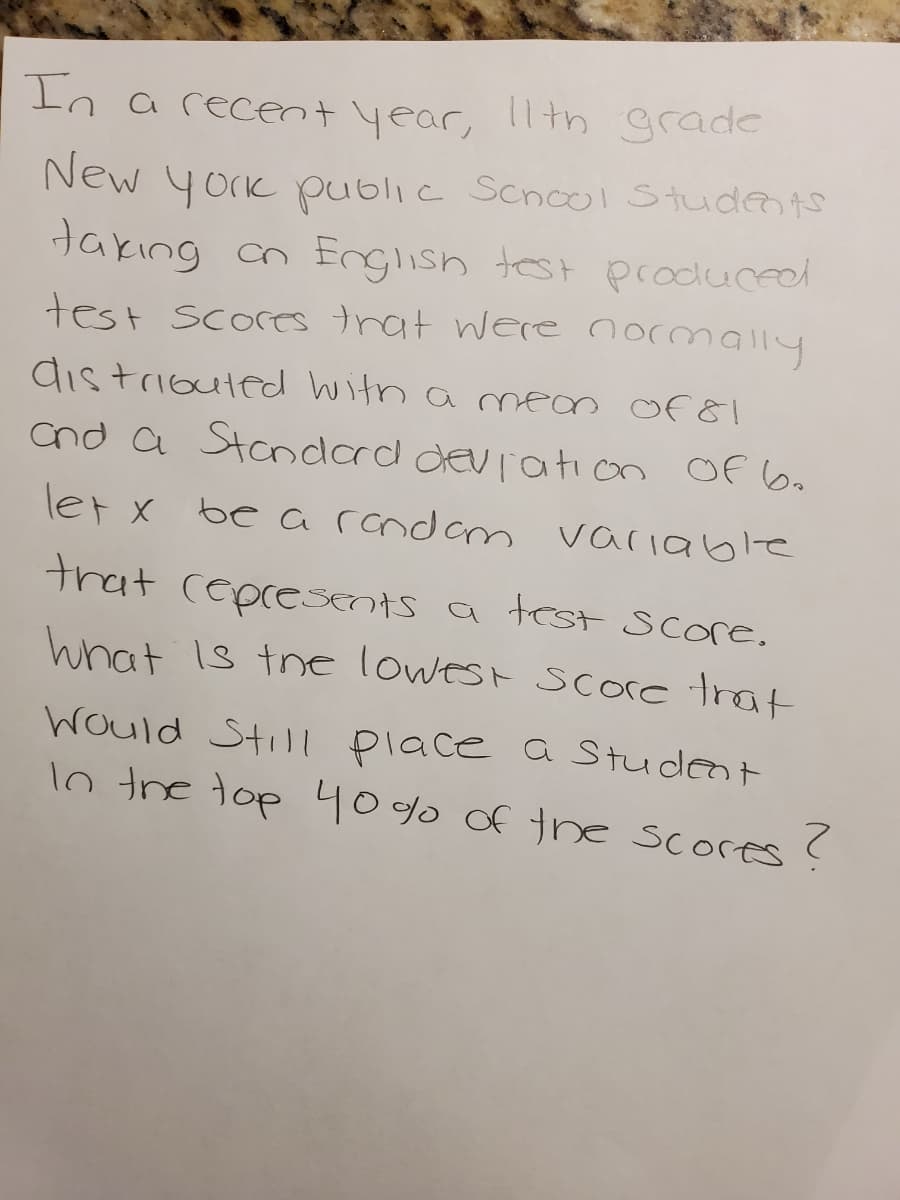 In a recent year, 11th grade
New York public School Students
taking an English test produced
test scores that were normally
distributed with a mean of 81
and a Standard deviation of 6.
let x be a random variable
that represents a test score.
What is the lowest score that
would still place a student
in the top 40% of the scores?